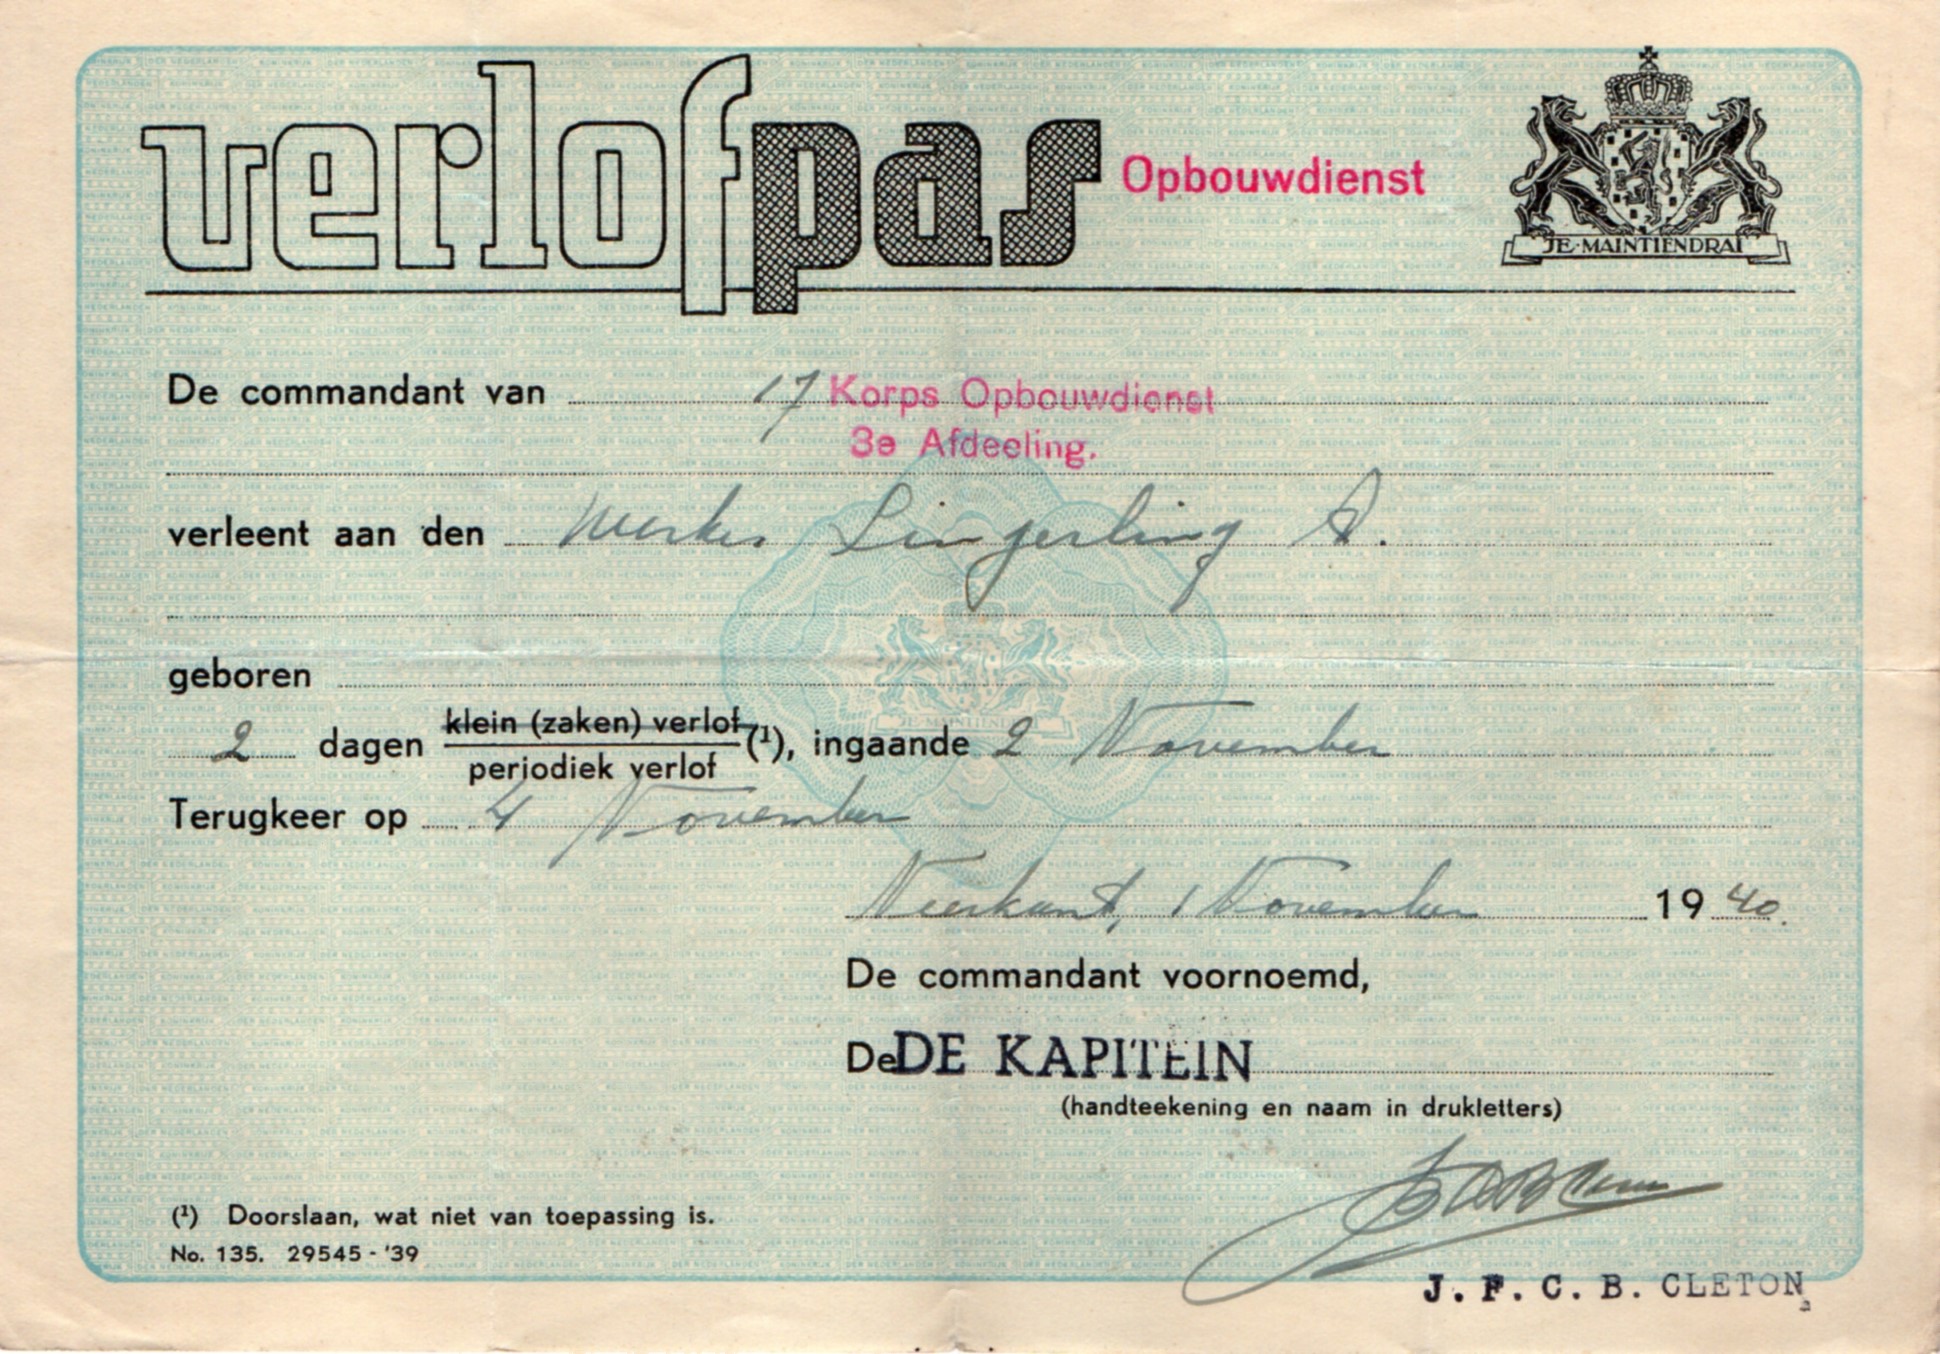 verlofpas Opbouwdienst
JE·MAINTIENDRAI
De commandant van 17 Korps Opbouwdienst
3e Afdeeling.
verleent aan den Werker Lingerling A.
geboren
2 dagen klein (zaken) verlof
periodiek verlof (¹), ingaande 2 November
Terugkeer op 4 November
1 November 1940.
De commandant voornoemd,
De DE KAPITEIN
(handteekening en naam in drukletters)
(¹) Doorslaan, wat niet van toepassing is.
No. 135. 29545 - '39
J. F. C. B. CLETON